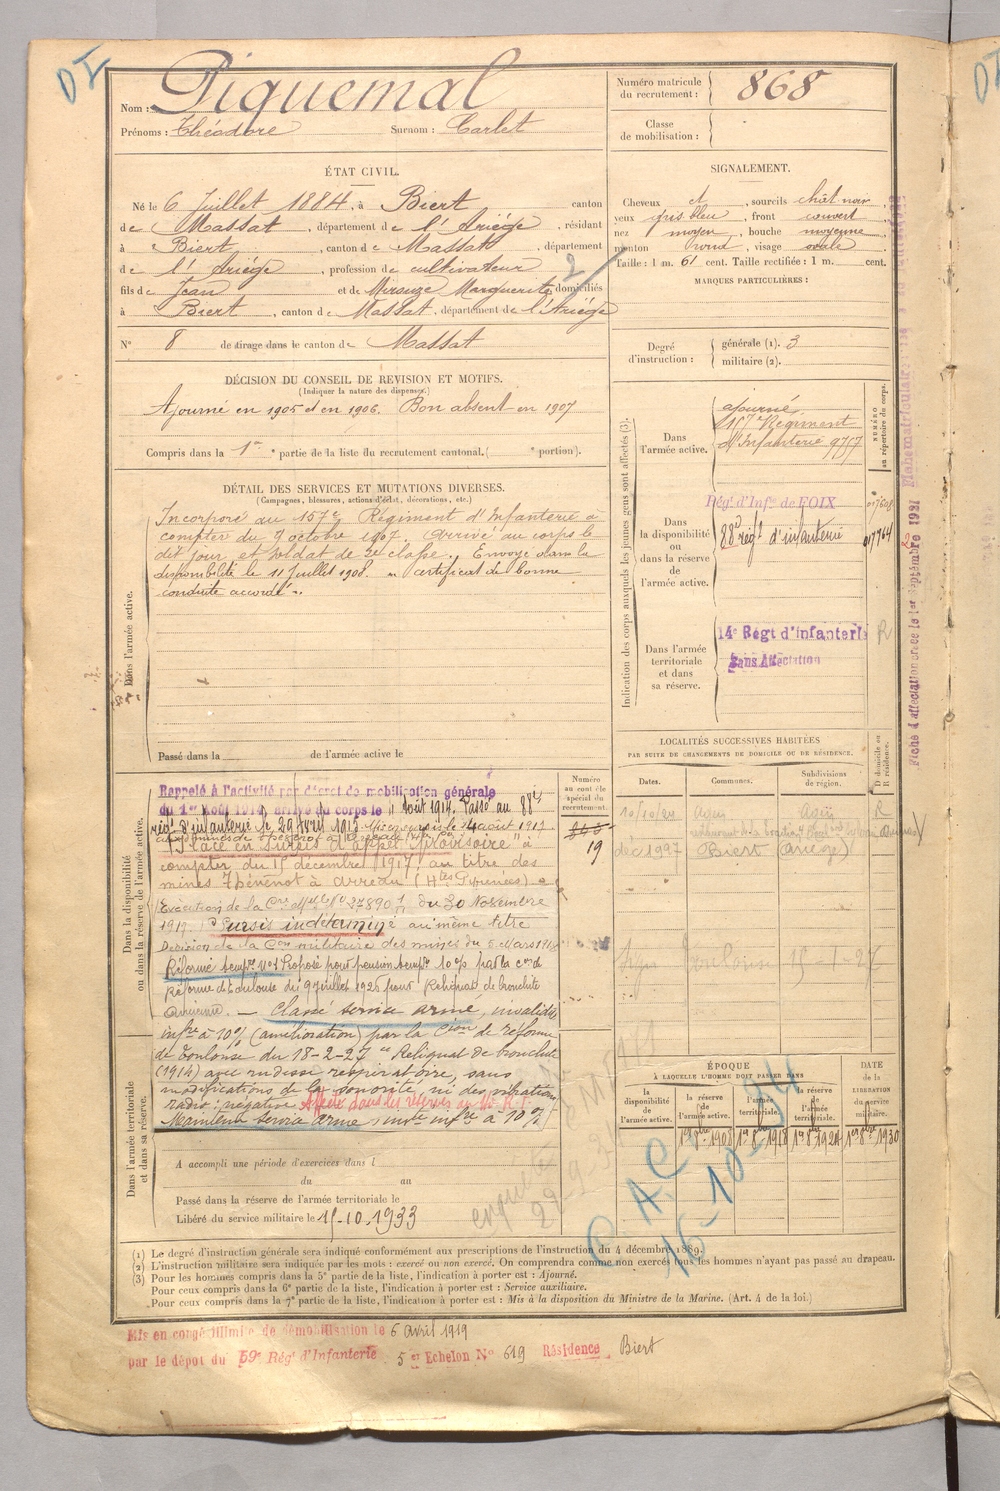 DI
Nom : Piquemal
Prénoms : Théodore Surnom : Carlet
Numéro matricule du recrutement : 868
Classe de mobilisation :
ÉTAT CIVIL.
Né le 6 Juillet 1884, à Biert canton
de Massat, département de l'Ariége, résidant
à Biert, canton de Massat, département
de l'Ariége, profession de cultivateur
fils de Jean et de Marguerite domiciliés
à Biert, canton de Massat, département de l'Ariége
N° 8 de tirage dans le canton de Massat
SIGNALEMENT.
Cheveux et, sourcils chât noir
yeux gris bleu, front couvert
nez moyen, bouche moyenne
menton rond, visage ovale
Taille : 1 m. 61 cent. Taille rectifiée : 1 m. cent.
MARQUES PARTICULIÈRES :
2
Degré d'instruction : générale (1). 3
militaire (2).
DÉCISION DU CONSEIL DE REVISION ET MOTIFS.
(Indiquer la nature des dispenses.)
Ajourné en 1905 et en 1906. Bon absent en 1907
Compris dans la 1re partie de la liste du recrutement cantonal. ( e portion).
DÉTAIL DES SERVICES ET MUTATIONS DIVERSES.
(Campagnes, blessures, actions d'éclat, décorations, etc.)
Dans l'armée active.
Incorporé au 157e Régiment d'Infanterie à
compter du 7 octobre 1907. Arrivé au corps le
dit jour, et soldat de 2e classe. Envoyé dans la
disponibilité le 11 Juillet 1908. certificat de bonne
conduite accordé.
Passé dans la de l'armée active le
Indication des corps auxquels les jeunes gens sont affectés (3).
NUMÉRO au répertoire du corps.
Dans l'armée active.
ajourné
157e Régiment
d'Infanterie 9757
Dans la disponibilité ou dans la réserve de l'armée active.
Rég. d'Infie de FOIX
88e régt d'infanterie 017764
Dans l'armée territoriale et dans sa réserve.
14e Régt d'Infanterie R
Sans Affectation
LOCALITÉS SUCCESSIVES HABITÉES
PAR SUITE DE CHANGEMENTS DE DOMICILE OU DE RÉSIDENCE.
Dates. Communes. Subdivisions de région. D domicile ou R résidence.
10/10/24 Agen Agen R
Biert (Ariège)
Toulouse 15-1-27
Dans la disponibilité ou dans la réserve de l'armée active.
Numéro au contrôle spécial du recrutement.
19
Rappelé à l'activité par décret de mobilisation générale
du 1er Août 1914, arrivé au corps le 11 Août 1914. Passé au 88e
rég. d'infanterie le 29 Avril 1915
Placé en sursis d'appel "Provisoire" à
compter du 15 décembre 1917, au titre des
mines Thévenot à Arreau (Htes Pyrénées)
Exécution de la du 30 Novembre
1917. Sursis indéterminé au même titre
Décision de la Con militaire des mines du 5 mars 1918
Réformé tempre n°1 Proposé pour pension tempre 10% par la Con de
réforme de Toulouse du 9 juillet 1926 pour Reliquat de bronchite
Classé service armé, invalidité
infre à 10% (amélioration) par la Cion de réforme
de Toulouse du 18-2-27 Reliquat de bronchite
(1914) avec rudesse respiratoire, sans
modifications de la sonorité, ni des vibrations
radio : négative Affecté dans les réserves au
Maintenu service armé invté infre à 10%
Dans l'armée territoriale et dans sa réserve.
A accompli une période d'exercices dans l
du au
Passé dans la réserve de l'armée territoriale le
Libéré du service militaire le 15-10-1933
ÉPOQUE
À LAQUELLE L'HOMME DOIT PASSER DANS
la disponibilité de l'armée active.
la réserve de l'armée active.
l'armée territoriale.
la réserve de l'armée territoriale.
DATE de la LIBÉRATION du service militaire.
1er 8bre 1908 1er 8bre 1918 1er 8bre 1924 1er 8bre 1930
C. A. C.
16-10-34
(1) Le degré d'instruction générale sera indiqué conformément aux prescriptions de l'instruction du 4 décembre 1889.
(2) L'instruction militaire sera indiquée par les mots : exercé ou non exercé. On comprendra comme non exercés tous les hommes n'ayant pas passé au drapeau.
(3) Pour les hommes compris dans la 5e partie de la liste, l'indication à porter est : Ajourné.
Pour ceux compris dans la 6e partie de la liste, l'indication à porter est : Service auxiliaire.
Pour ceux compris dans la 7e partie de la liste, l'indication à porter est : Mis à la disposition du Ministre de la Marine. (Art. 4 de la loi.)
Mis en congé illimité de démobilisation le 6 avril 1919
par le dépôt du 59e Rég. d'Infanterie 5e Echelon N° 619 Résidence Biert